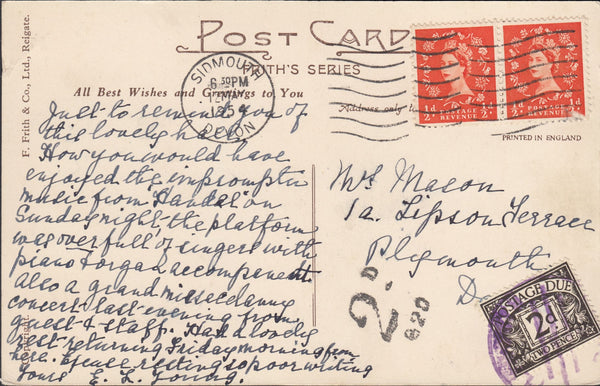 POST CARD
FRITH'S SERIES
All Best Wishes and Greetings to You
Address only
PRINTED IN ENGLAND
F. Frith & Co., Ltd., Reigate.
Copyright.
SIDMOUTH
6 50 PM
195
DEVON
½d POSTAGE REVENUE ½d
½d POSTAGE REVENUE ½d
Just to remind you of
this lovely
How you would have
enjoyed the impromptu
music from "Handal" on
Sunday night, the platform
was over full of singers with
piano & organ accompanent.
Also a grand miscellanny
concert last evening from
guest & staff. Had a lovely
rest returning Friday morning from
here. Excuse resting so poor writing
Yours E. L. Young.
Mrs Mason
1a. Lipson Terrace
Plymouth
D
2D
620
POSTAGE DUE
2d
TWO PENCE